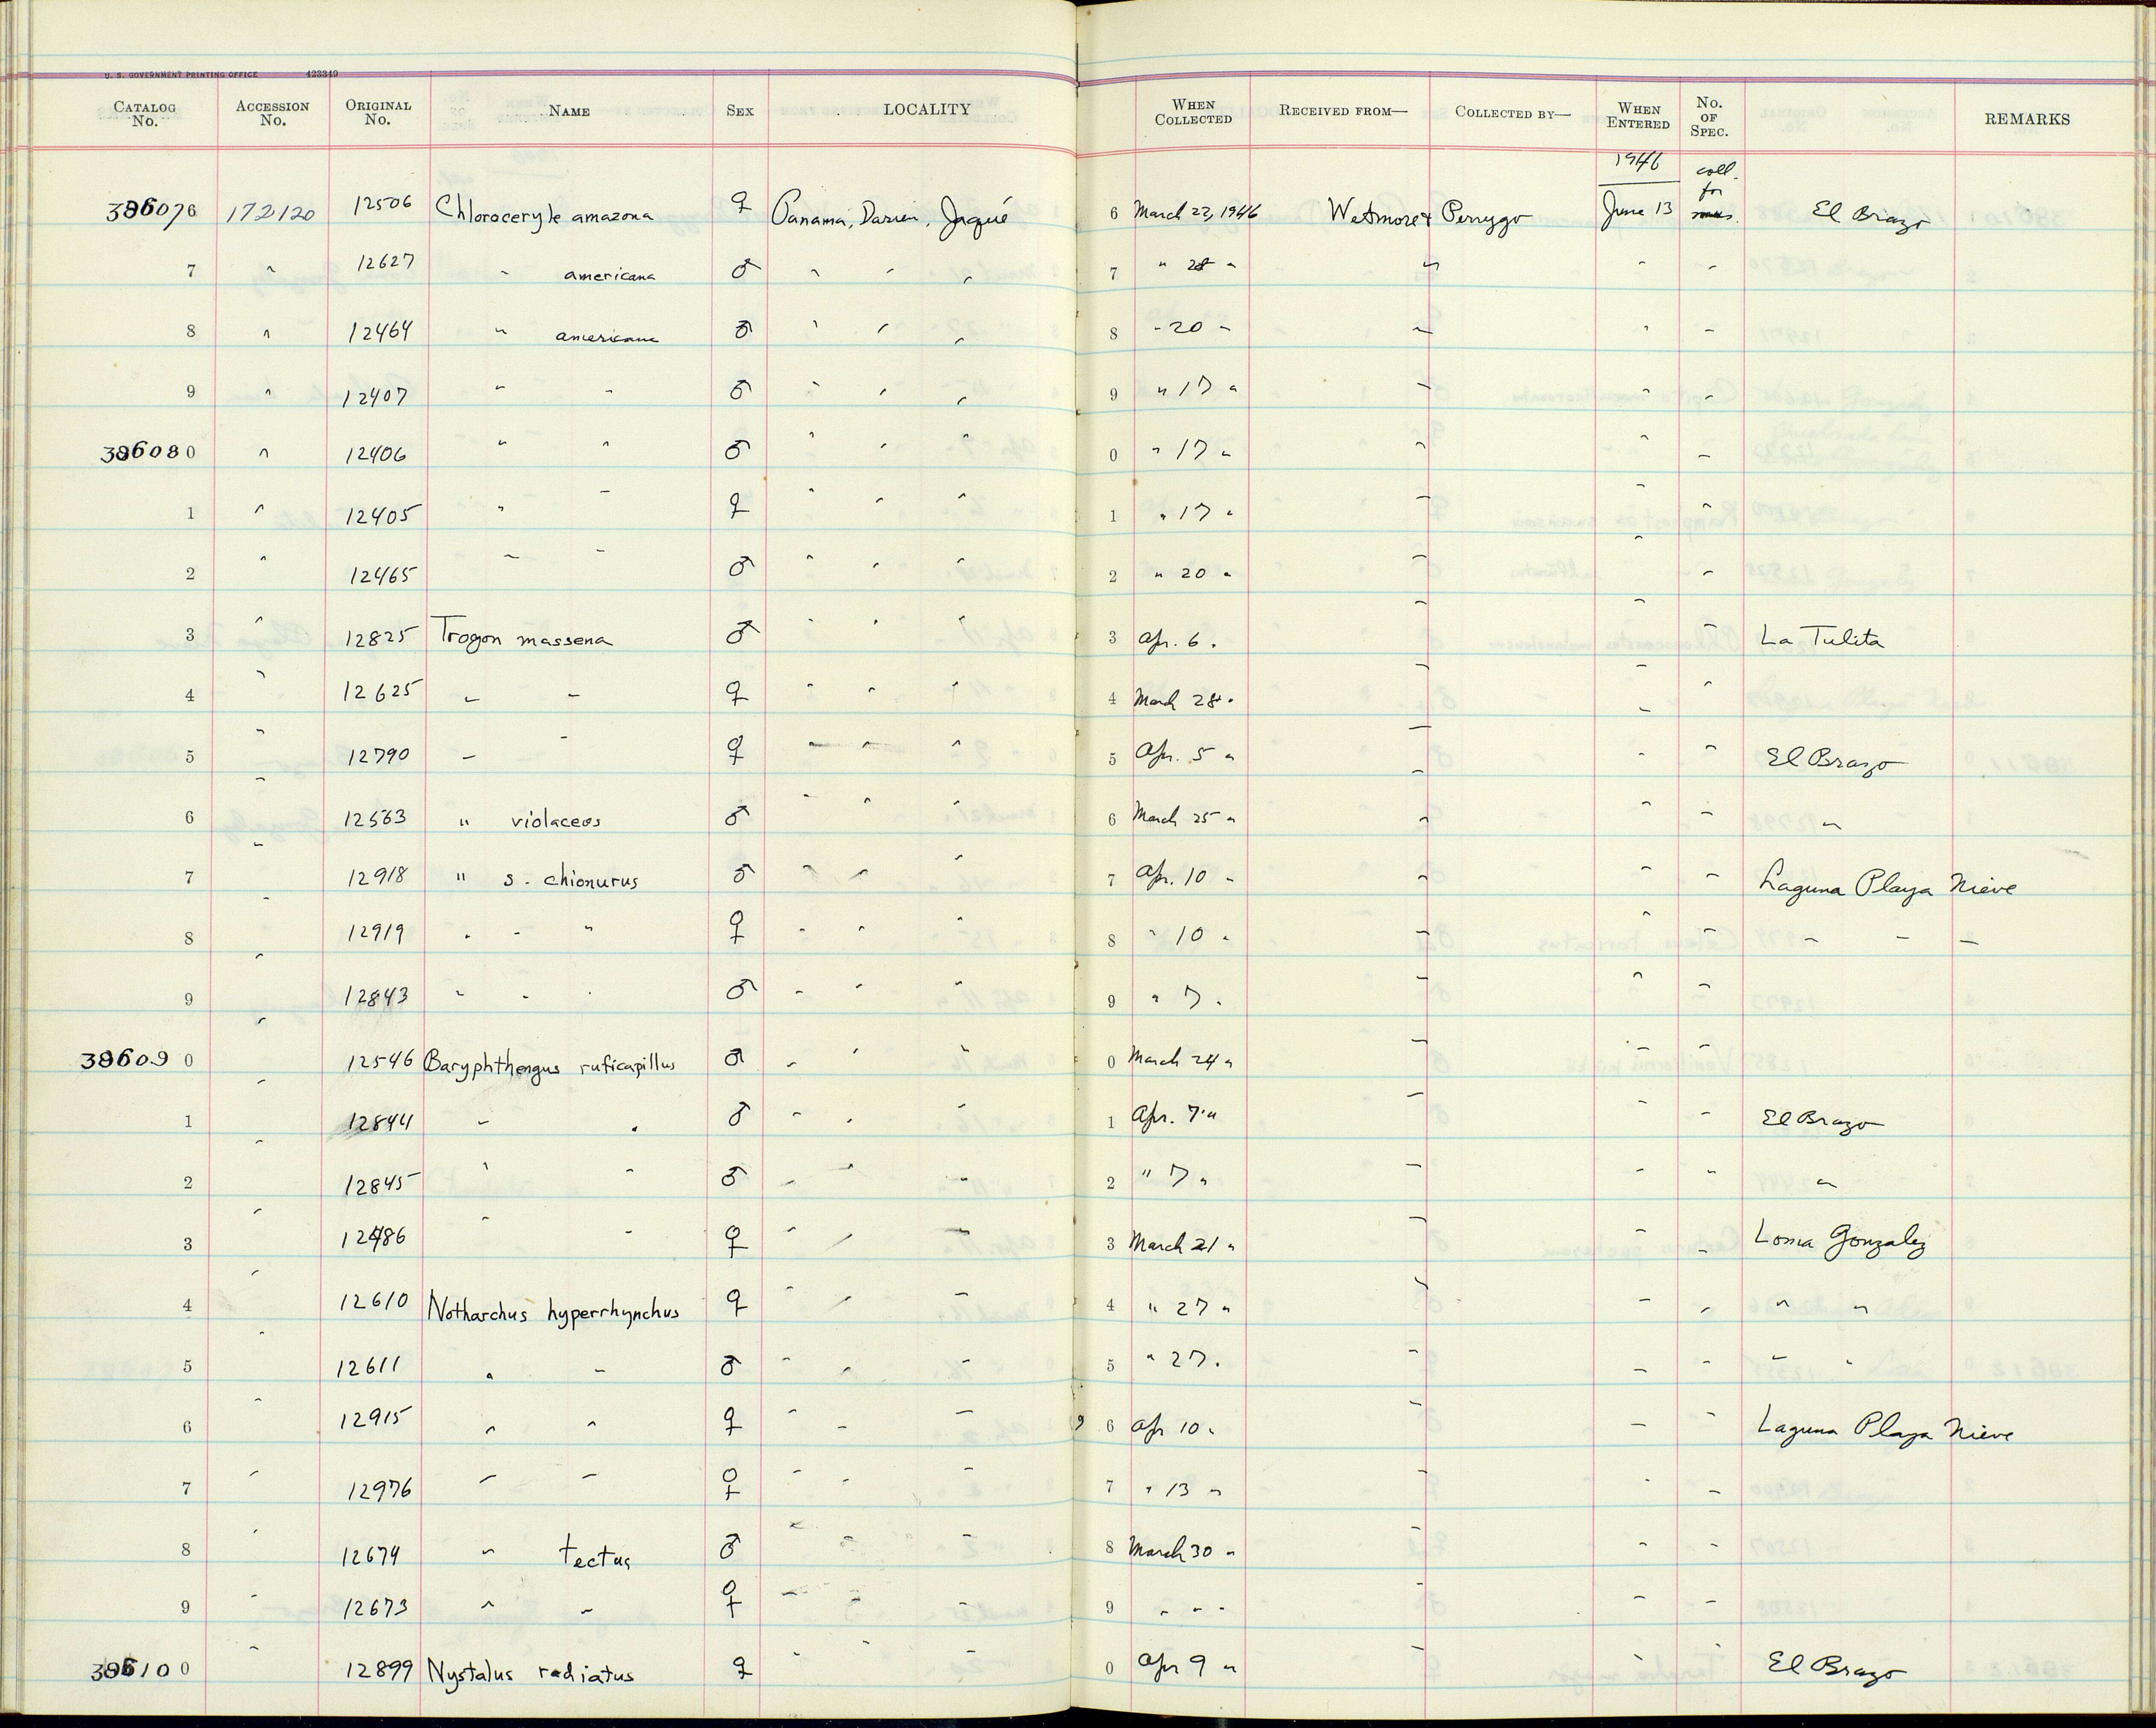 U. S. GOVERNMENT PRINTING OFFICE 423349
CATALOG No. ACCESSION No. ORIGINAL No. NAME SEX LOCALITY WHEN COLLECTED RECEIVED FROM— COLLECTED BY— WHEN ENTERED No. OF SPEC. REMARKS
386076 172120 12506 Chloroceryle amazona ♀ Panama, Darien, Jaqué 6 March 22, 1946 Wetmore & Perrygo 1946 June 13 coll. for mus. El Brazo
7 " 12627 " americana ♂ " " " 7 " 28 " " " "
8 " 12464 " americana ♂ " " " 8 " 20 " " " "
9 " 12407 " " ♂ " " " 9 " 17 " " " "
386080 " 12406 " " ♂ " " " 0 " 17 " " " "
1 " 12405 " " ♀ " " " 1 " 17 " " " "
2 " 12465 " " ♂ " " " 2 " 20 " " " "
3 " 12825 Trogon massena ♂ " " " 3 Apr. 6 " " " " La Tulita
4 " 12625 " " ♀ " " " 4 March 28 " " " "
5 " 12790 " " ♀ " " " 5 Apr. 5 " " " " El Brazo
6 " 12563 " violaceus ♂ " " " 6 March 25 " " " " "
7 " 12918 " s. chionurus ♂ " " " 7 Apr. 10 " " " " Laguna Playa Nieve
8 " 12919 " " " ♀ " " " 8 " 10 " " " " " " "
9 " 12843 " " " ♂ " " " 9 " 7 " " " "
386090 " 12546 Baryphthengus ruficapillus ♂ " " " 0 March 24 " " " "
1 " 12844 " " ♂ " " " 1 Apr. 7 " " " " El Brazo
2 " 12845 " " ♂ " " " 2 " 7 " " " " "
3 " 12486 " " ♀ " " " 3 March 21 " " " " Loma Gonzalez
4 " 12610 Notharchus hyperrhynchus ♀ " " " 4 " 27 " " " " " "
5 " 12611 " " ♂ " " " 5 " 27 " " " " " "
6 " 12915 " " ♀ " " " 6 Apr 10 " " " " Laguna Playa Nieve
7 " 12976 " " ♀ " " " 7 " 13 " " " "
8 " 12674 " tectus ♂ " " " 8 March 30 " " " "
9 " 12673 " " ♀ " " " 9 " " " " " "
386100 " 12899 Nystalus radiatus ♀ " " " 0 Apr 9 " " " " El Brazo